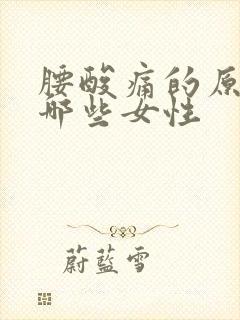 腰酸痛的原
哪些女性
蔚蓝雪